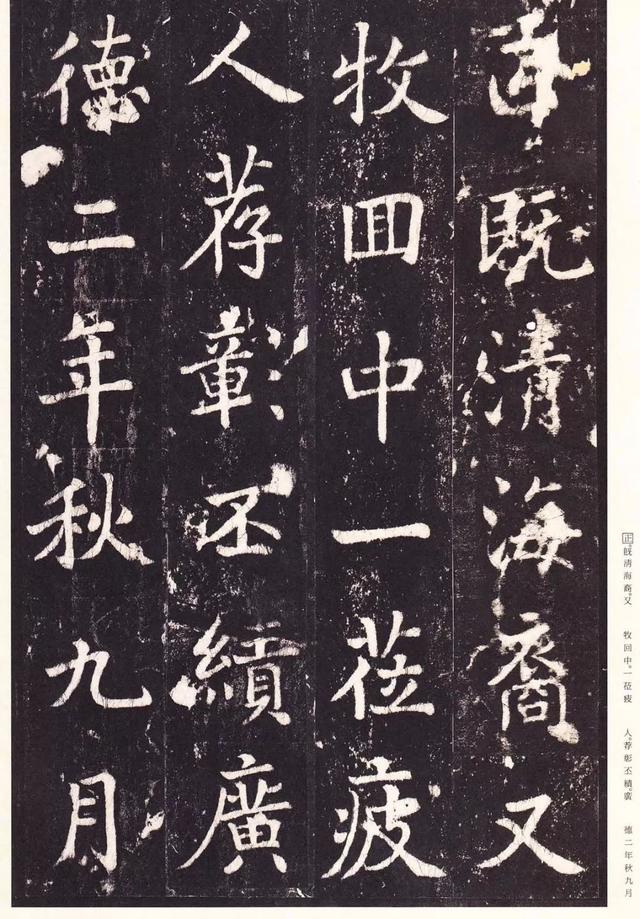 既清海裔又
牧囬中一莅疲
人荐彰丕績廣
德二年秋九月
正。既清海裔。又 牧回中。一莅疲 人。荐彰丕績。廣 德二年秋九月